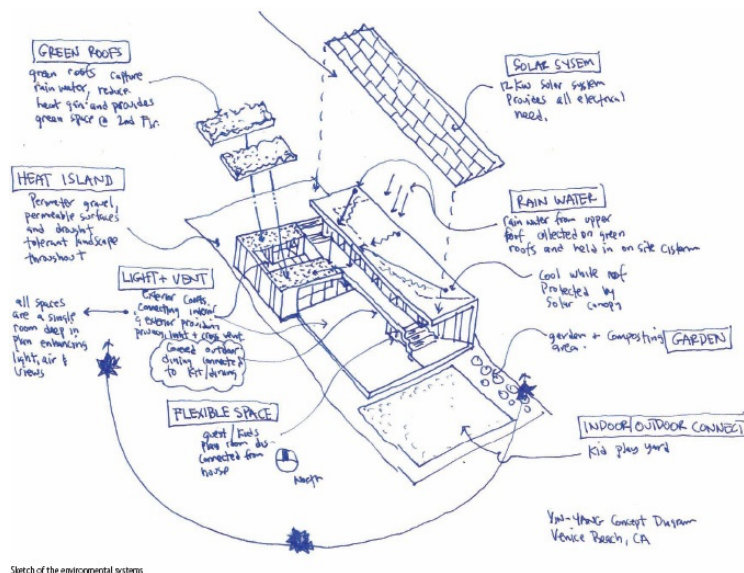 GREEN ROOFS
green roofs capture
rain water, reduce
heat gain and provides
green space @ 2nd Flr.
SOLAR SYSEM
12kw solar system
Provides all electrical
need.
HEAT ISLAND
Perimeter gravel,
permeable surfaces
and drought
tolerant landscape
throughout
RAIN WATER
rain water from upper
roof collected on green
roofs and held in on site cistern
Cool white roof
Protected by
Solar canopy
LIGHT + VENT
Exterior courts
connecting interior
& exterior providing
privacy, light + cross vent.
all spaces
are a single
room deep in
plan enhancing
light, air &
views
Covered outdoor
dining connected
to Kit/dining
garden + composting
area.
GARDEN
FLEXIBLE SPACE
guest/kids
play room dis-
connected from
house
North
INDOOR/OUTDOOR CONNECT
Kid play yard
YIN-YANG Concept Diagram
Venice Beach, CA
Sketch of the environmental systems